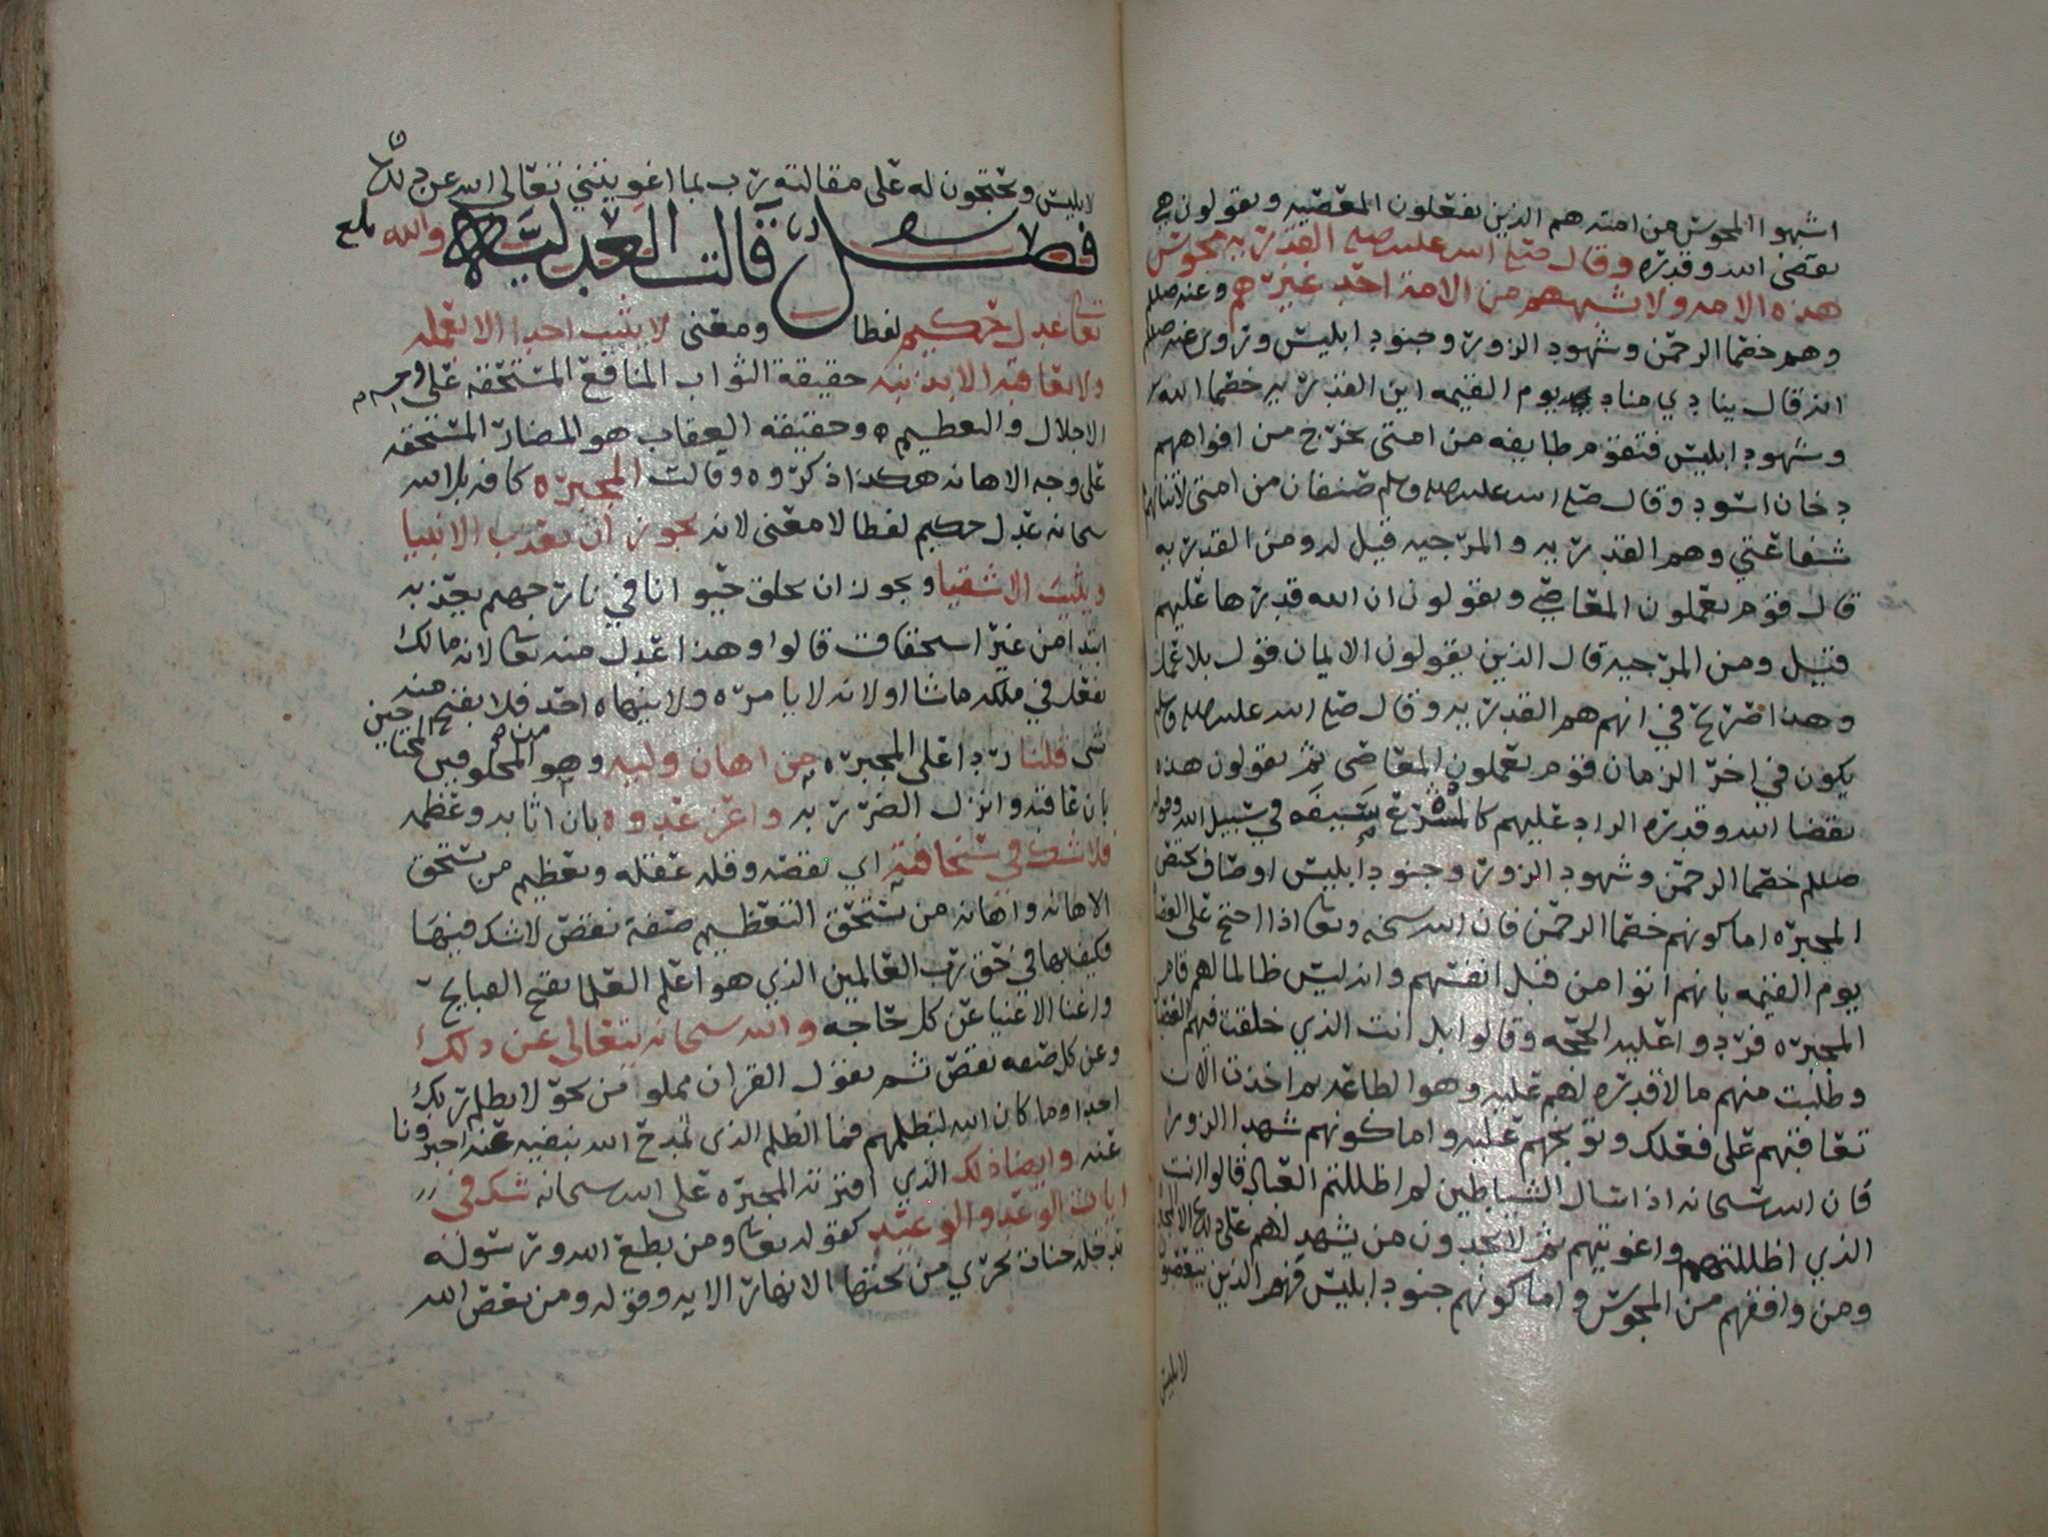 اشبهوا المجوس من امته هم الذين يفعلون المعصيه ويقولون هي
بقضى الله وقدره وقال صلى الله عليه وسلم القدريه مجوس
هذه الامه ولا شبههم من الامه احد غيرهم وعنه صللم
وهم خصما الرحمن وشهود الزور وجنود ابليس وتروى عنه صللم
انه قال ينادي مناد يوم القيمه اين القدريه خصما الله
وشهود ابليس فتقوم طايفه من امتى يخرج من افواههم
دخان اسود وقال صلى الله عليه وسلم صنفان من امتى لا تنالهم
شفاعتي وهم القدريه والمرجيه قيل له ومن القدريه
قال قوم يعملون المعاصي ويقولون ان الله قدرها عليهم
قيل ومن المرجيه قال الذين يقولون الايمان قول بلا عمل
وهذا صريح في انهم هم القدريه وقال صلى الله عليه وسلم
يكون في اخر الزمان قوم يعملون المعاصى ثم يقولون هذه
بقضا الله وقدره الراد عليهم كالمشرع سيفه في سبيل الله وقوله
صللم خصما الرحمن وشهود الزور وجنود ابليس اوصاف تختص
المجبره اما كونهم خصما الرحمن فان الله سبحنه وتعا اذا احتج على العصاه
يوم القيمه بانهم اتوا من قبل انفسهم وانه ليس ظالما لهم قامت
المجبره فردوا عليه الحجه وقالوا بل انت الذي خلقت فيهم العصيان
وطلبت منهم مالا قدره لهم عليه وهو الطاعه ثم اخذت الان
تعاقبهم على فعلك وتوبخهم عليه واما كونهم شهدا الزور
فان الله سبحانه اذا سال الشياطين لم اظللتم العباد قالوا انت
الذي اظللتهم واغويتهم ثم لا يجدون من يشهد لهم على ذلك الا المجبره
ومن وافقهم من المجوس واما كونهم جنود ابليس فهم الذين يتعصبون
لابليس
لابليس ويحتجون له على مقالته رب بما اغويتني تعالى الله عن ذلك
فصل قالت العدليه والله
تعا عدل حكيم لفظا ومعنى لا يثيب احدا الا بعمله
ولا يعاقبه الا بذنبه حقيقة الثواب المنافع المستحقه على وجه
الاجلال والتعظيم وحقيقه العقاب هو المضار المستحقه
على وجه الاهانه هكذا ذكروه وقالت المجبره كافه بل الله
سبحانه عدل حكيم لفظا لا معنى لانه يجوز ان يعذب الانبيا
ويثيب الاشقيا ويجوز ان يخلق حيوانا في نار جهنم يعذبه
ابتدا من غير استحقاق قالوا وهذا عدل منه تعا لانه مالك
يفعل في ملكه ما شا او لانه لا يامره ولا ينهاه احد فلا يقبح منه
شى قلنا ردا على المجبره من اهان وليه وهو من المخلوقين المحتاجين
بان عاقبه وانزل الضرر به واعز عدوه بان اثابه وعظمه
فلا شك في سخافته اي نقصه وقله عقله وتعظيم من يستحق
الاهانه واهانه من يستحق التعظيم صفة نقص لا شك فيها
فكيف بها في حق رب العالمين الذي هو اعلم العلما بقبح القبايح
واغنا الاغنيا عن كل حاجه والله سبحانه يتعالى عن ذلك
وعن كل صفه نقص ثم نقول القران مملوا من نحو لا يظلم ربك
احدا وما كان الله ليظلمهم فما الظلم الذى تمدح الله بنفيه عنه اخبرونا
عنه وايضا ذلك الذي افترته المجبره على الله سبحانه شك في
ايات الوعد والوعيد كقوله تعا ومن يطع الله ورسوله
يدخله جنات تجري من تحتها الانهار الايه وقوله ومن يعص الله